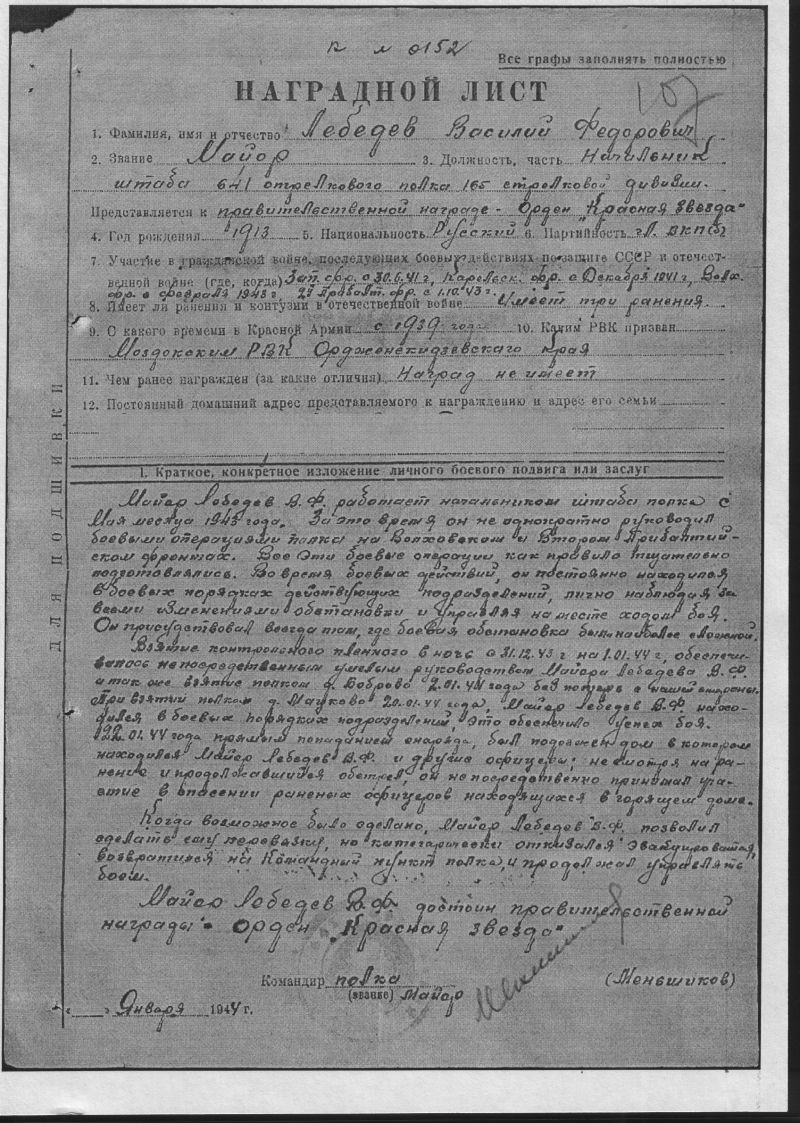 к № 0152
Все графы заполнять полностью
НАГРАДНОЙ ЛИСТ
107
1. Фамилия, имя и отчество Лебедев Василий Федорович
2. Звание Майор 3. Должность, часть Начальник
штаба 641 стрелкового полка 165 стрелковой дивизии.
Представляется к правительственной награде - Орден "Красная Звезда"
4. Год рождения 1913 5. Национальность Русский 6. Партийность чл. ВКП(б)
7. Участие в гражданской войне, последующих боевых действиях по защите СССР и отечест-
венной войне (где, когда) Зап. фр. с 30.6.41 г, Карельск. фр. с Декабря 1941 г, Волх.
фр. с февраля 1943 г 2й Прибалт. фр. с 1.10.43 г.
8. Имеет ли ранения и контузии в отечественной войне Имеет три ранения.
9. С какого времеми в Красной Армии с 1939 года 10. Каким РВК призван
Моздокским РВК Орджоникидзевского края
11. Чем ранее награжден (за какие отличия) Наград не имеет
12. Постоянный домашний адрес представляемого к награждению и адрес его семьи
ДЛЯ ПОДШИВКИ
I. Краткое, конкретное изложение личного боевого подвига или заслуг
Майор Лебедев В.Ф. работает начальником штаба полка с
Мая месяца 1943 года. За это время он не однократно руководил
боевыми операциями полка на Волховском и Втором Прибалтий-
ском фронтах. Все эти боевые операции как правило тщательно
подготовлялись. Во время боевых действий, он постоянно находился
в боевых порядках действующих подразделений, лично наблюдая за
всеми изменениями обстановки и управляя на месте ходом боя.
Он присудствовал всегда там, где боевая обстановка была наиболее сложной.
Взятие контрольного пленного в ночь с 31.12.43 г на 1.01.44 г, обеспечи-
валось непосредственным умелым руководством Майора Лебедева В.Ф.
а так же взятие полком д. Боброво 2.01.44 года без потерь с нашей стороны.
При взятии полком д. Мауково 20.01.44 года, Майор Лебедев В.Ф. нахо-
дился в боевых порядках подразделений, это обеспечило успех боя.
22.01.44 года прямым попаданием снаряда, был подожжен дом в котором
находился Майор Лебедев В.Ф. и другие офицеры; несмотря на ра-
нение и продолжавшийся обстрел он непосредственно принимал уча-
стие в спасении раненых офицеров находящихся в горящем доме.
Когда возможное было сделано, Майор Лебедев В.Ф. позволил
сделать ему перевязку, но категарически отказался эвакуироваться,
возвратился на Командный пункт полка, и продолжал управлять
боем.
Майор Лебедев В.Ф. достоин правительственной
награды - Орден "Красная Звезда"
Командир полка (Меньшиков)
(звание) Майор
Января 1944 г.